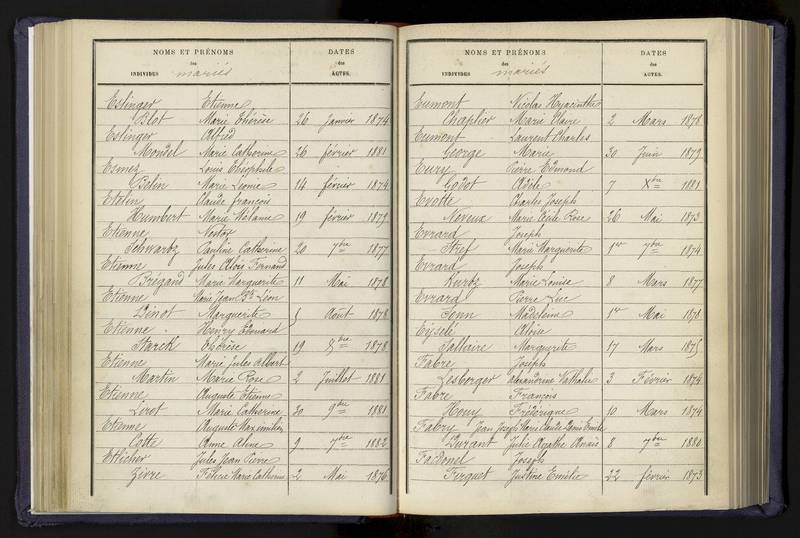 NOMS ET PRÉNOMS
des
INDIVIDUS mariés
DATES
des
ACTES.
Eslinger Etienne
Blot Marie Thérèse 26 Janvier 1874
Eslinger Alfred
Monzel Marie Catherine 26 février 1881
Esmez Louis Théophile
Belin Marie Léonie 14 février 1874
Etelin Claude françois
Humbert Marie Mélanie 19 février 1879
Etienne Nestor
Schwartz Pauline Catherine 20 7bre 1877
Etienne Jules Aloïs Fernand
Brégand Marie Marguerite 11 Mai 1878
Etienne Marie Jean Bte Léon
Dinot Marguerite 8 Août 1878
Etienne Henry Edouard
Starck Thérèse 19 8bre 1878
Etienne Marie Jules Albert
Martin Marie Rose 2 Juillet 1881
Etienne Auguste Etienne
Liret Marie Catherine 30 9bre 1881
Etienne Auguste Maximilien
Cotte Anne Aline 9 7bre 1882
Etlicher Jules Jean Pierre
Zivre Félicie Marie Catherine 2 Mai 1876
NOMS ET PRÉNOMS
des
INDIVIDUS mariés
DATES
des
ACTES.
Eumont Nicolas Hyacinthe
Chaplier Marie Claire 2 Mars 1878
Eumont Laurent Charles
George Marie 30 Juin 1879
Eury Pierre Edmond
Godot Adèle 7 Xbre 1881
Evotte Charles Joseph
Noveux Marie Cécile Rose 26 Mai 1873
Evrard Joseph
Stref Marie Marguerite 1er 7bre 1874
Evrard Joseph
Kurtz Marie Louise 8 Mars 1877
Evrard Pierre Luc
Tonn Madeleine 1er Mai 1878
Eyselé Aloïse
Sallaire Marguerite 17 Mars 1875
Fabre Joseph
Lesberger Alexandrine Nathalie 3 Février 1874
Fabre François
Heuy Frédérique 10 Mars 1874
Fabry Jean Joseph Marie Claude Denis Emile
Durant Julie Agathe Anaïs 8 7bre 1880
Facdonel Joseph
Ferquet Justine Emélie 22 février 1873